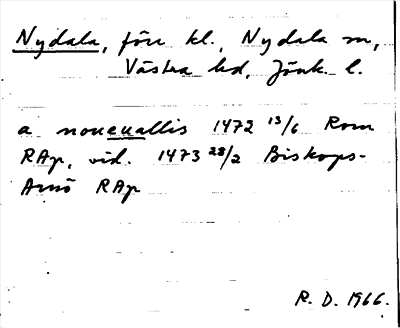 Nydala, förr kl., Nydala sn,
Västra hd, Jönk. l.
a noueuallis 1472 13/6 Rom
RAp, vid. 1473 28/2 Biskops-
Arnö RAp
R. D. 1966.